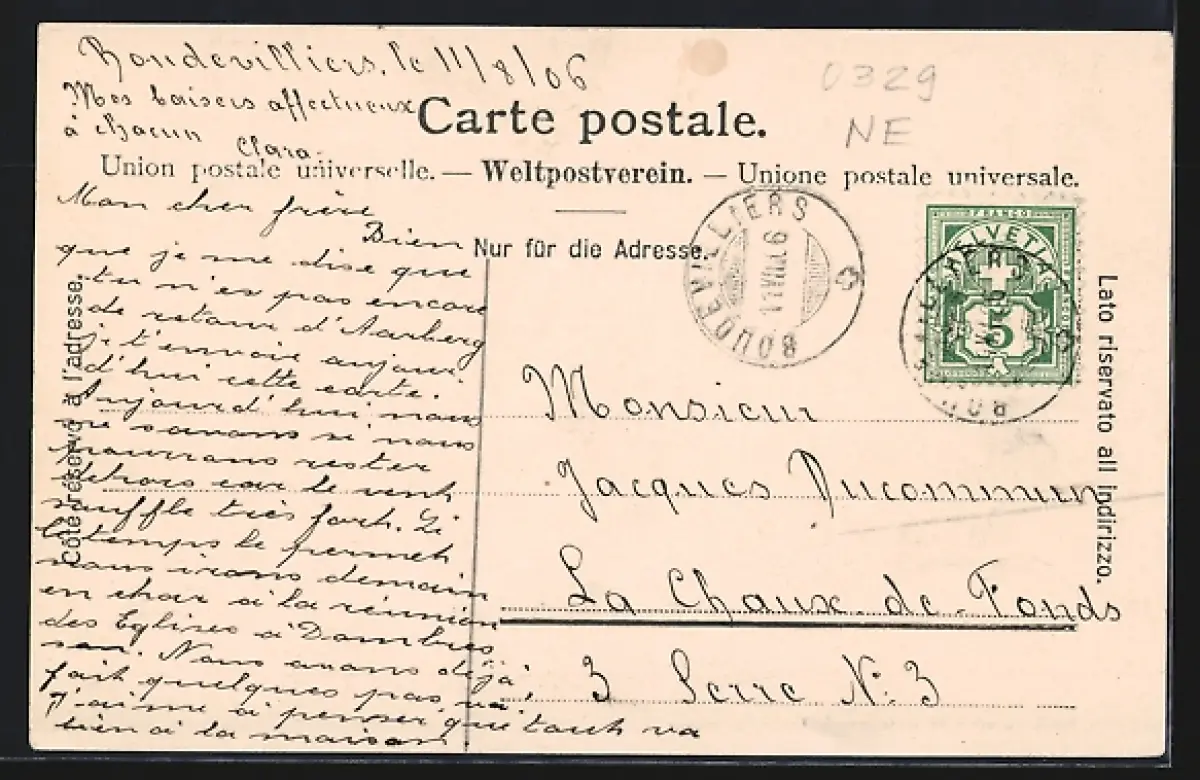 Boudevilliers, le 11/8/06
Mes baisers affectueux
à chacun
Clara.
0329
NE
Carte postale.
Union postale universelle. — Weltpostverein. — Unione postale universale.
Nur für die Adresse.
Côté réservé à l'adresse.
Lato riservato all indirizzo.
Mon cher frère
Bien
que je me dise que
tu n'es pas encore
de retour d'Aarberg
je t'envoie aujour
d'hui cette carte.
Aujourd'hui nous
ne savons si nous
pourrons rester
dehors car le vent
souffle très fort. Si
le temps le permet
nous irons demain
en char à la réunion
des Eglises à Dombres
son. Nous avons déjà
fait quelques pas,
J'aime à penser que tout va
bien à la maison
BOUDEVILLIERS
11 VIII 06
FRANCO
HELVETIA
5
Monsieur
Jacques Ducommun
La Chaux-de-Fonds
3 Serre N: 3